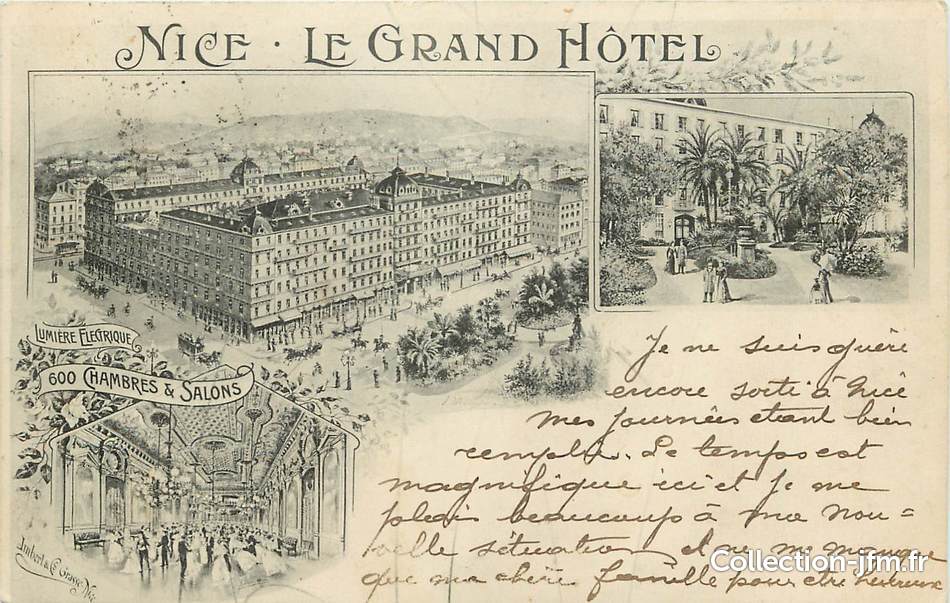 NICE · LE GRAND HÔTEL
LUMIÈRE ELECTRIQUE
600 CHAMBRES & SALONS
Imbert & Cie Grav. Nice
Je ne suis guère
encore sorti à Nice
mes journées étant bien
remplie. Le temps est
magnifique ici et je me
plais beaucoup à ma nou=
velle situation il ne me manque
que ma chère famille pour être heureux
Collection-jfm.fr